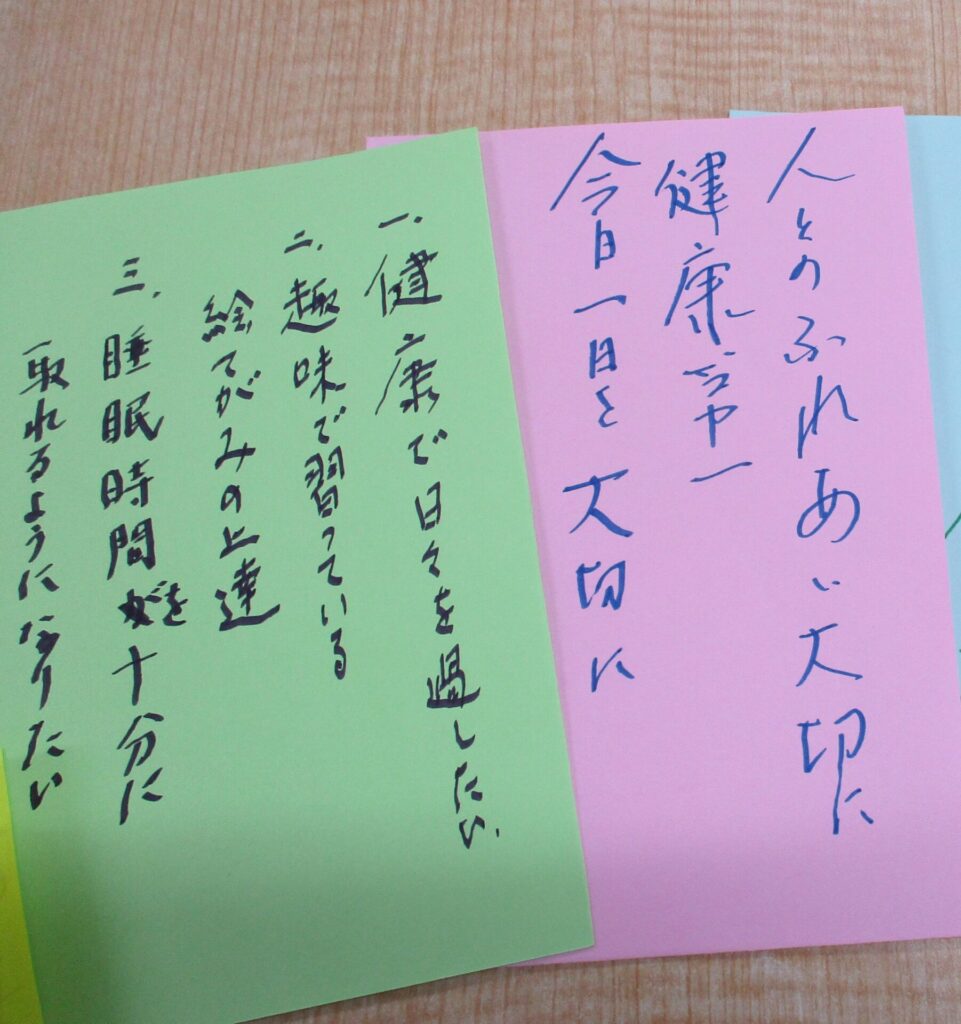 人とのふれあい大切に
健康第一
今日一日を大切に
一、健康で日々を過したい。
二、趣味で習っている
絵てがみの上達
三、睡眠時間を十分に
取れるようになりたい